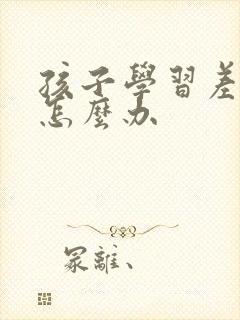 孩子學習差
怎麼办
冢離、